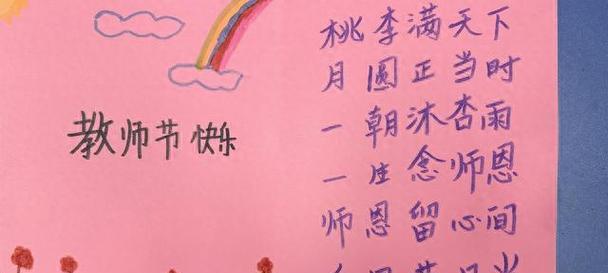 教师节快乐
桃李满天下
月圆正当时
一朝沐杏雨
一生念师恩
师恩留心间